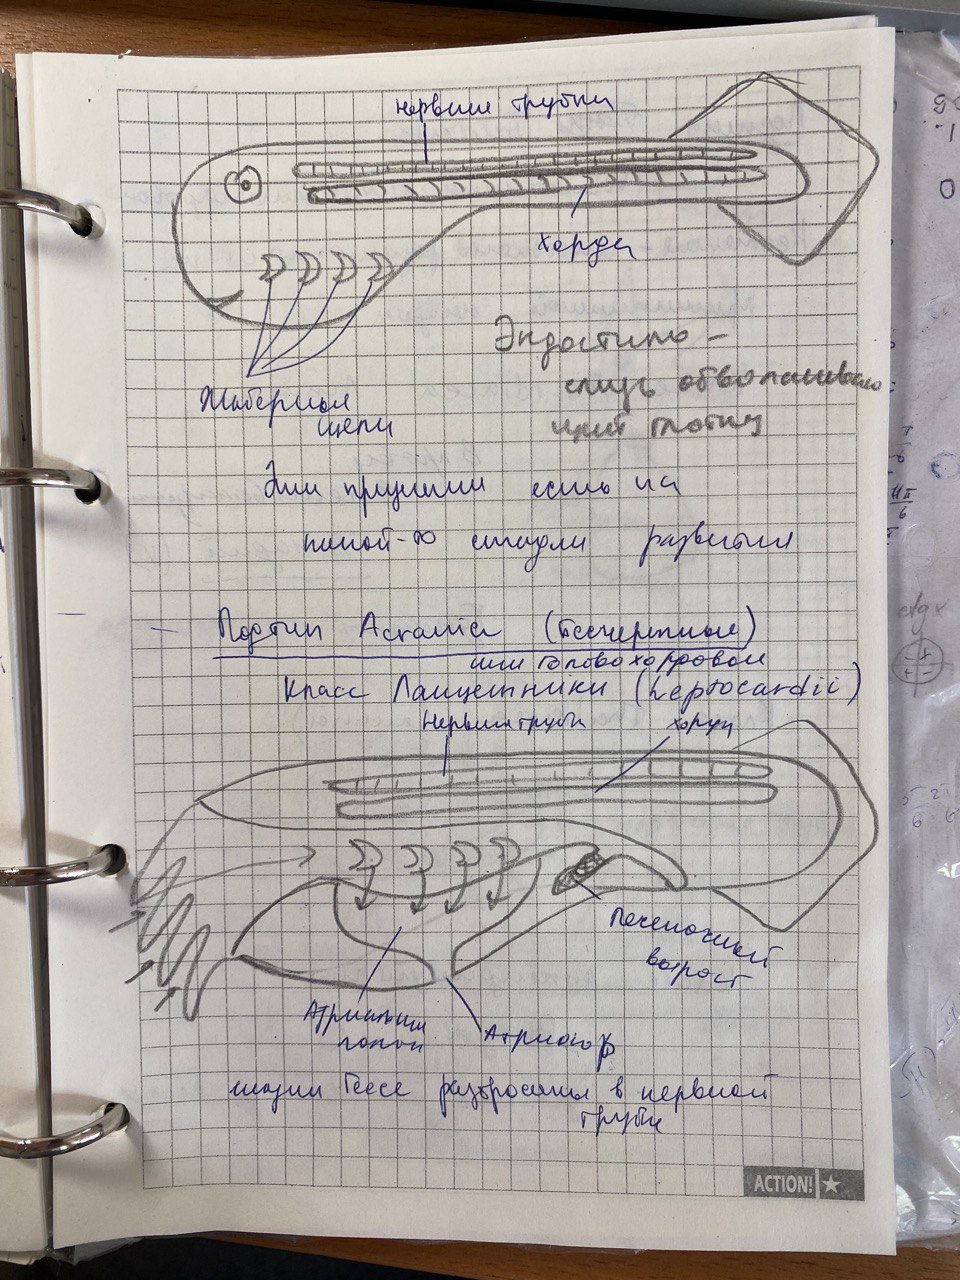 нервная трубка
хорда
Эндостиль -
слизь обволакиваю
щит глотку
Жаберные
щели
Эти признаки есть на
какой-то стадии развития
- Подтип Acrania (Бесчерепные)
или головохордовые
Класс Ланцетники (Leptocardii)
Нервная трубка
хорда
Печеночный
вырост
Атриальная
полость
Атриопор
глазки Гессе разбросаны в нервной
трубке
ACTION!